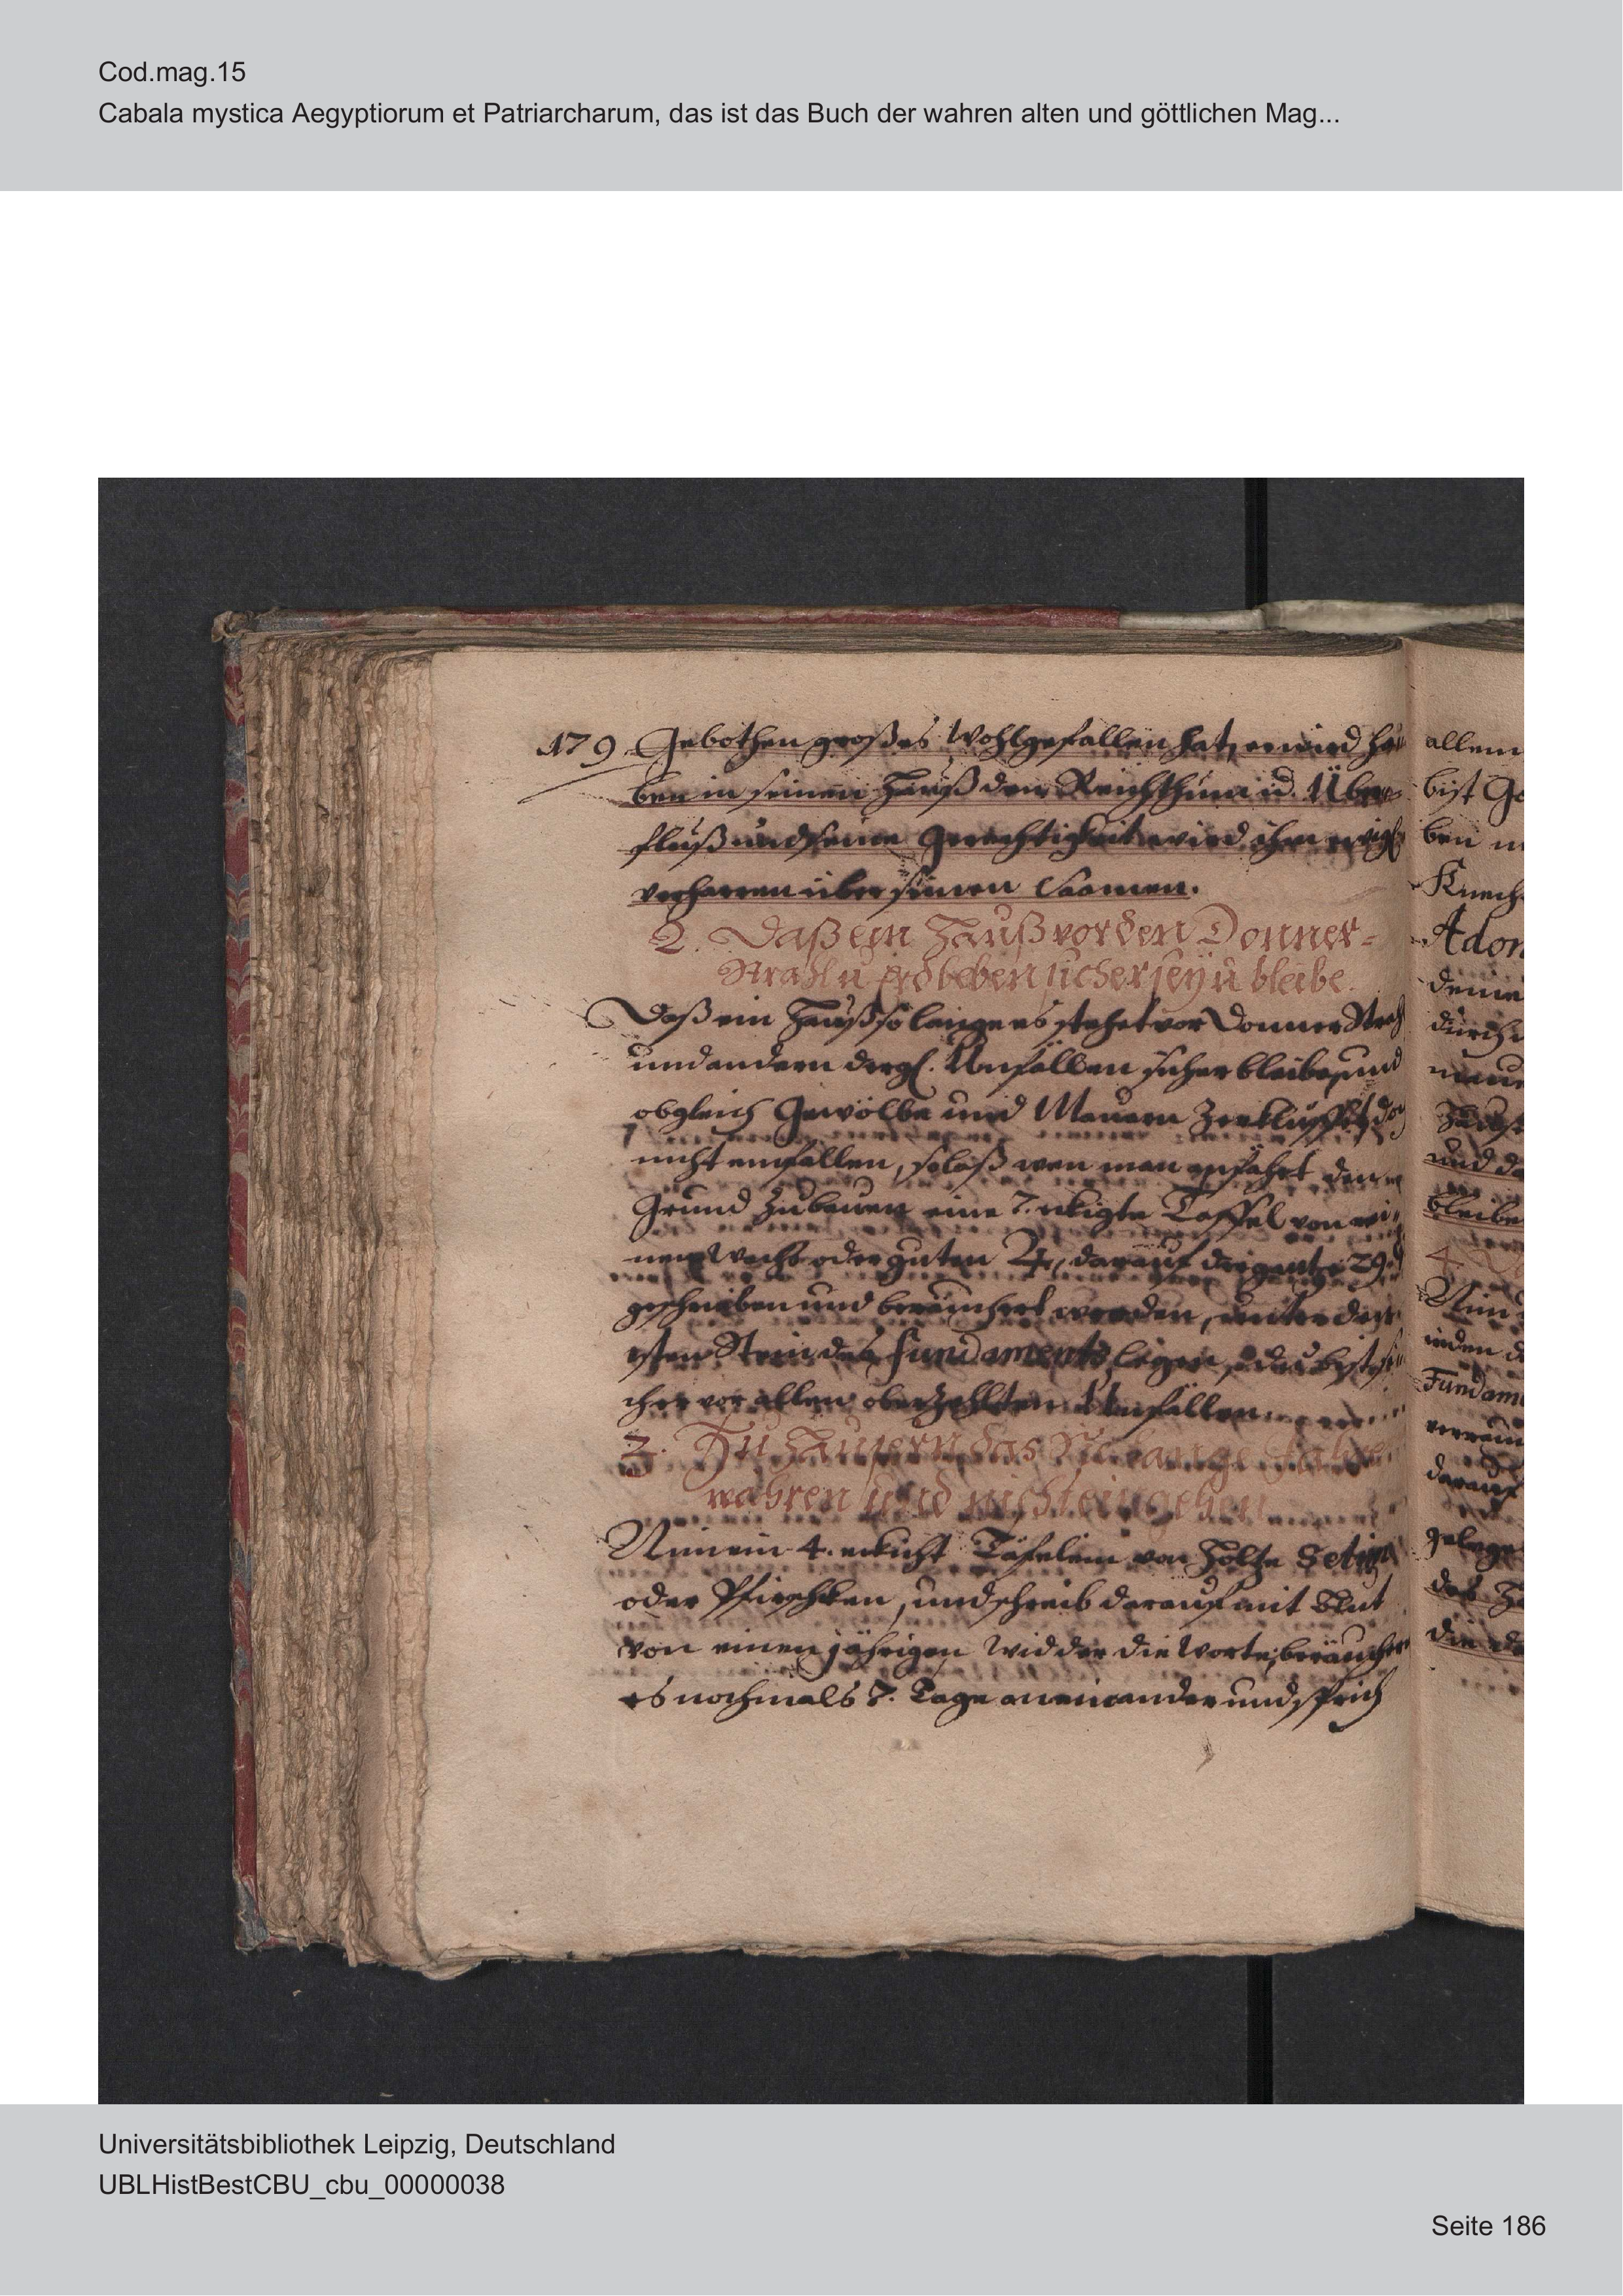 Cod.mag.15
Cabala mystica Aegyptiorum et Patriarcharum, das ist das Buch der wahren alten und göttlichen Mag...
179. Gebothen großes Wohlgefallen hat, er wird ha⸗
ben in seinen Hauß den Reichthum ud. Über⸗
fluß und seine Gerechtigkeit wird ihm ewigl.
verharren über seinen Saamen.
2. Daß ein Hauß vor den Donner⸗
Strahl u Erdbeben sicher sey u bleibe.
Daß ein Hauß so lange es stehet vor Donner Strahl
und andern dergl. Unfällen sicher bleibe, und
obgleich Gewölbe und Mauern doch
nicht einfallen, so laß wen man anfährt den
Grund zubauen eine 7. ekigte Taffel von rei⸗
nen Wachs oder guten ♃, darauf 29.
geschrieben und beräuchert werden, unter den
sten Stein des Fundaments legen, du bist si⸗
cher vor allen oberzehlten Unfällen
3. Zu Häusern das Sie lange Jahre
währen und nicht eingehen
Nim ein 4. eckicht Täfelein von Holtze Setim
oder Pfirschken, und schreib darauf mit Blut
von einen jährigen Widder die Worte, beräuchere
es nochmals 7. Tage aneinander und sprich
allem
bist Ge
ben
Knech
Adon
deine
durch
und da
bleibe
4.
Nim
Fundam
darauf
gelege
das
die
Universitätsbibliothek Leipzig, Deutschland
UBLHistBestCBU_cbu_00000038
Seite 186